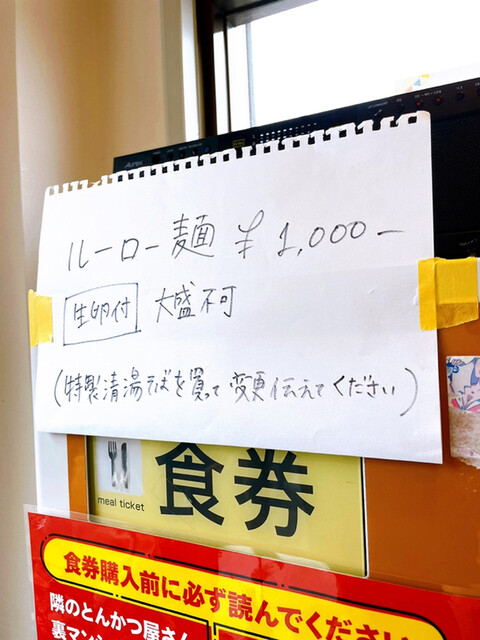 ルーロー麺 ¥1,000ー
生卵付 大盛不可
(特製清湯そばを買って変更伝えてください)
食券
meal ticket
食券購入前に必ず読んでください
隣のとんかつ屋さん
裏マンシ